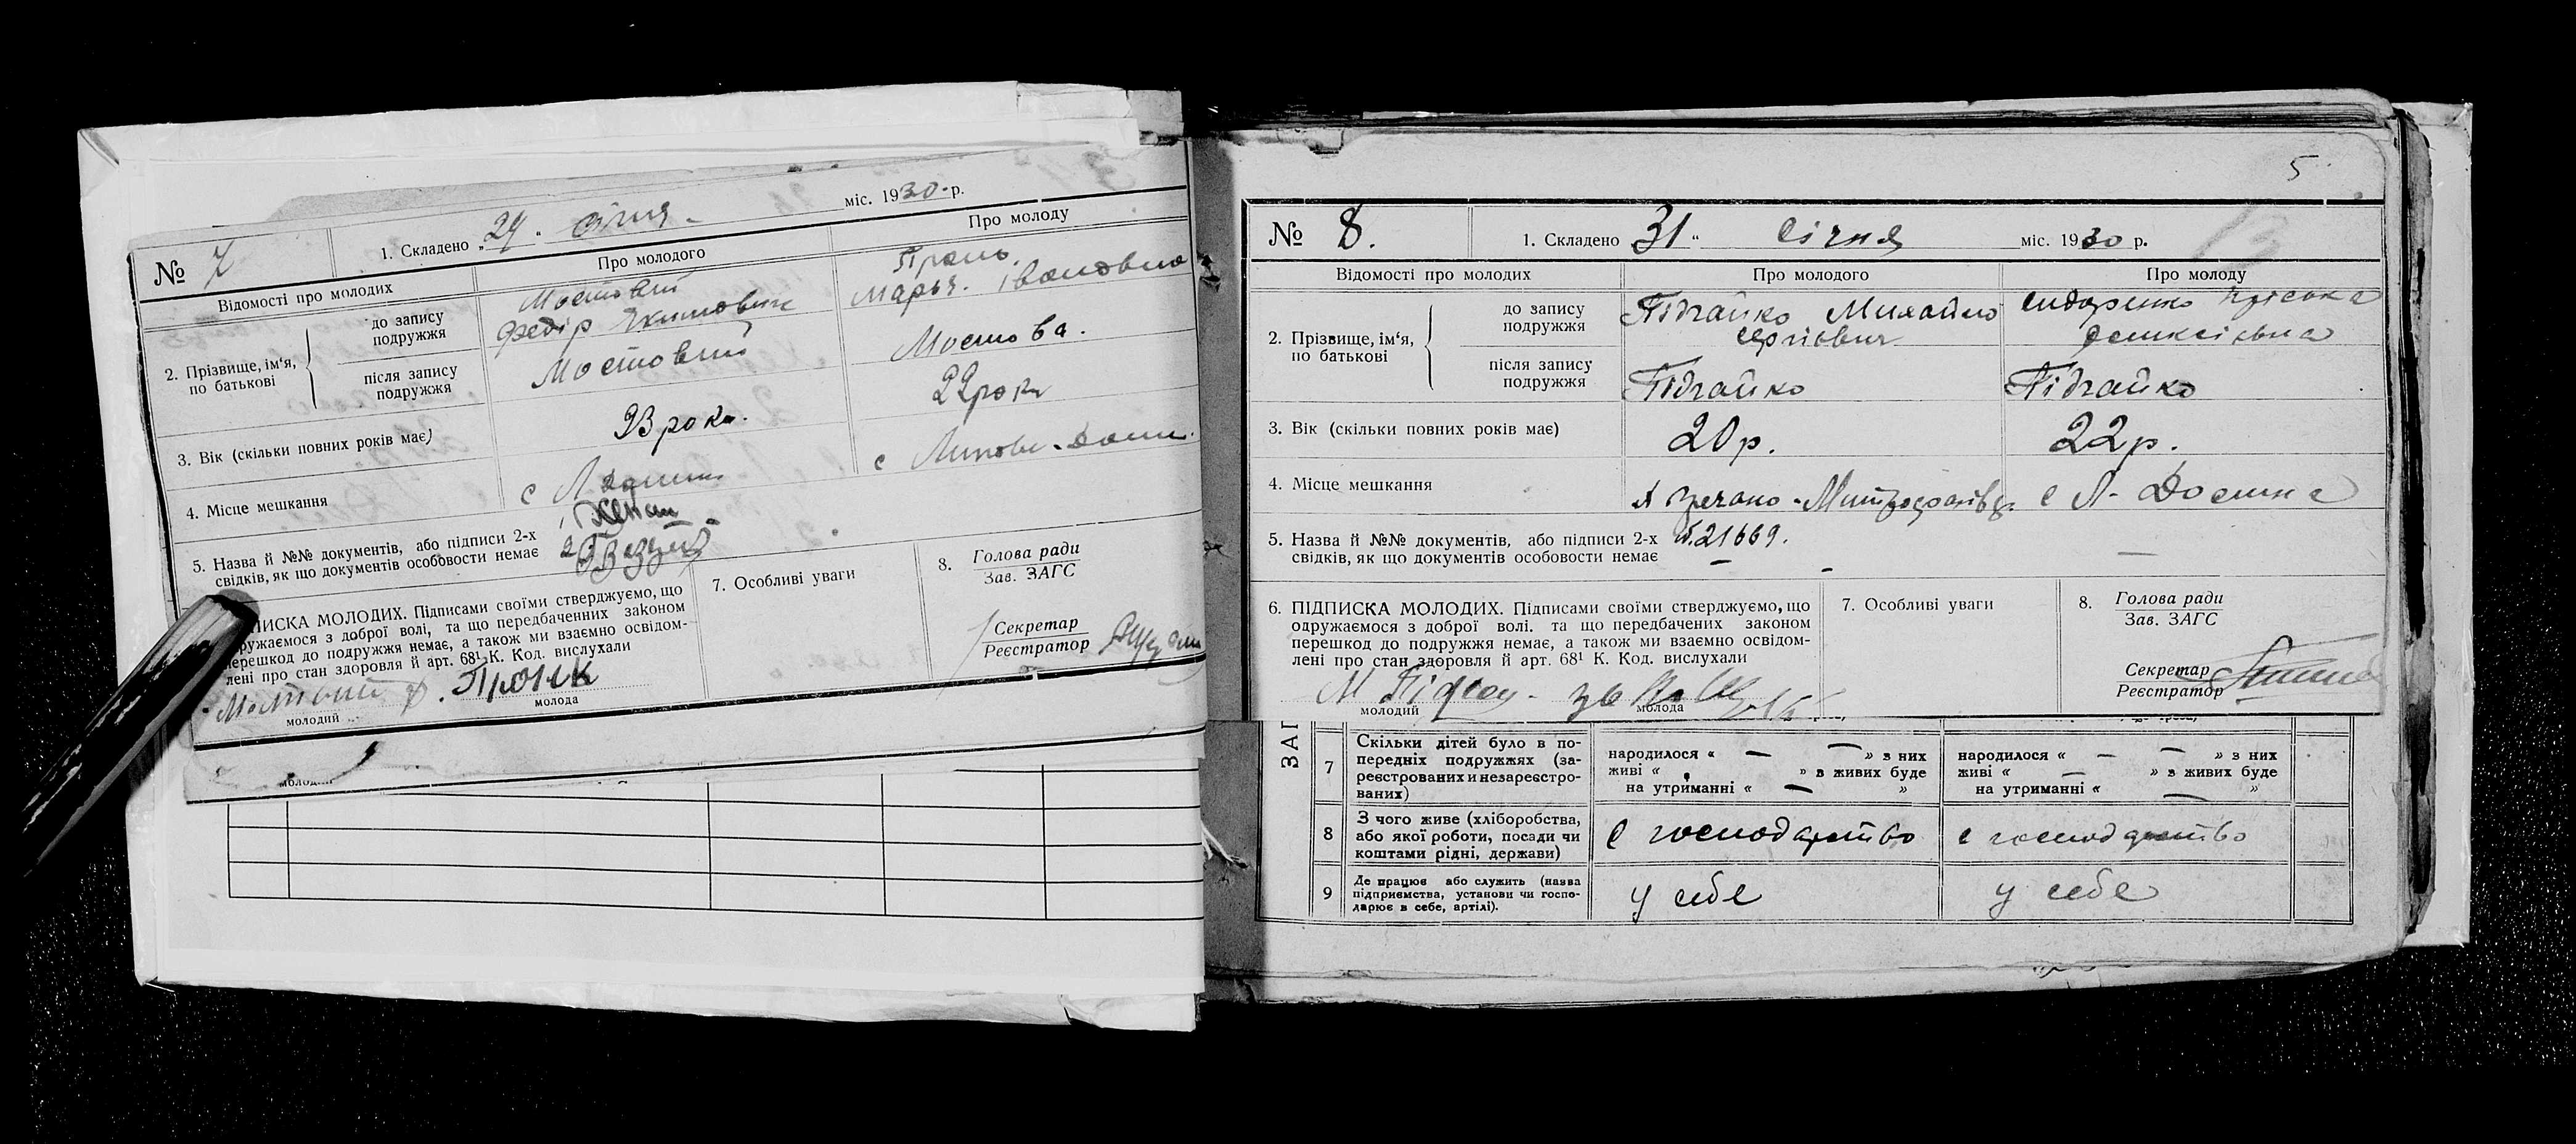 № 7
1. Складено „29“ січня міс. 1930 р.
Відомості про молодих
Про молодого
Про молоду
2. Прізвище, ім'я, по батькові
до запису подружжя
Мостовий
Федір Якимович
Марья Івановна
після запису подружжя
Мостовий
Мостова.
3. Вік (скільки повних років має)
23 роки.
22 роки
4. Місце мешкання
с
с Липова-Долин.
5. Назва й №№ документів, або підписи 2-х
свідків, як що документів особовости немає
ПИСКА МОЛОДИХ. Підписами своїми стверджуємо, що
ружаємося з доброї волі, та що передбаченних законом
перешкод до подружжя немає, а також ми взаємно освідом-
лені про стан здоровля й арт. 68¹ К. Код. вислухали
молодий
молода
7. Особливі уваги
8. Голова ради
Зав. ЗАГС
Секретар
Реєстратор
5
№ 8.
1. Складено 31 “ січня міс. 1930 р.
Відомості про молодих
Про молодого
Про молоду
2. Прізвище, ім'я, по батькові
до запису подружжя
Підгайко Михайло
Сергієвич
Сидоренко
після запису подружжя
Підгайко
Підгайко
3. Вік (скільки повних років має)
20 р.
22 р.
4. Місце мешкання
с Л-Долина
5. Назва й №№ документів, або підписи 2-х
свідків, як що документів особовости немає
21669.
6. ПІДПИСКА МОЛОДИХ. Підписами своїми стверджуємо, що
одружаємося з доброї волі. та що передбачених законом
перешкод до подружжя немає, а також ми взаємно освідом-
лені про стан здоровля й арт. 68¹ К. Код. вислухали
молодий
молода
7. Особливі уваги
8. Голова ради
Зав. ЗАГС
Секретар
Реєстратор
ЗАГ
7
Скільки дітей було в по-
передніх подружжях (за-
реєстрованих и незареєстро-
ваних)
народилося « — — » з них
живі « » з живих буде
на утриманні « — »
народилося « — — » з них
живі « — » з живих буде
на утриманні « — »
8
З чого живе (хліборобства,
або якої роботи, посади чи
коштами рідні, держави)
с господарство
с господарство
9
Де працює або служить (назва
підприємства, установи чи госпо-
дарює в себе, артілі).
у себе
у себе